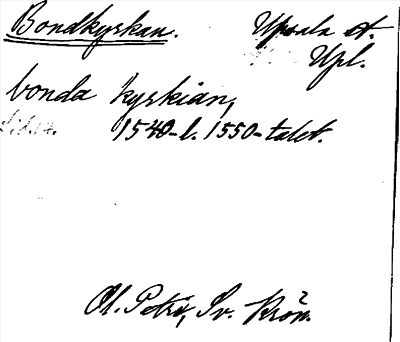 Bondkyrkan. Upsala st.
Upl.
bonda kyrkian,
1540-l. 1550-talet.
Ol. Petri, Sv. Krön.